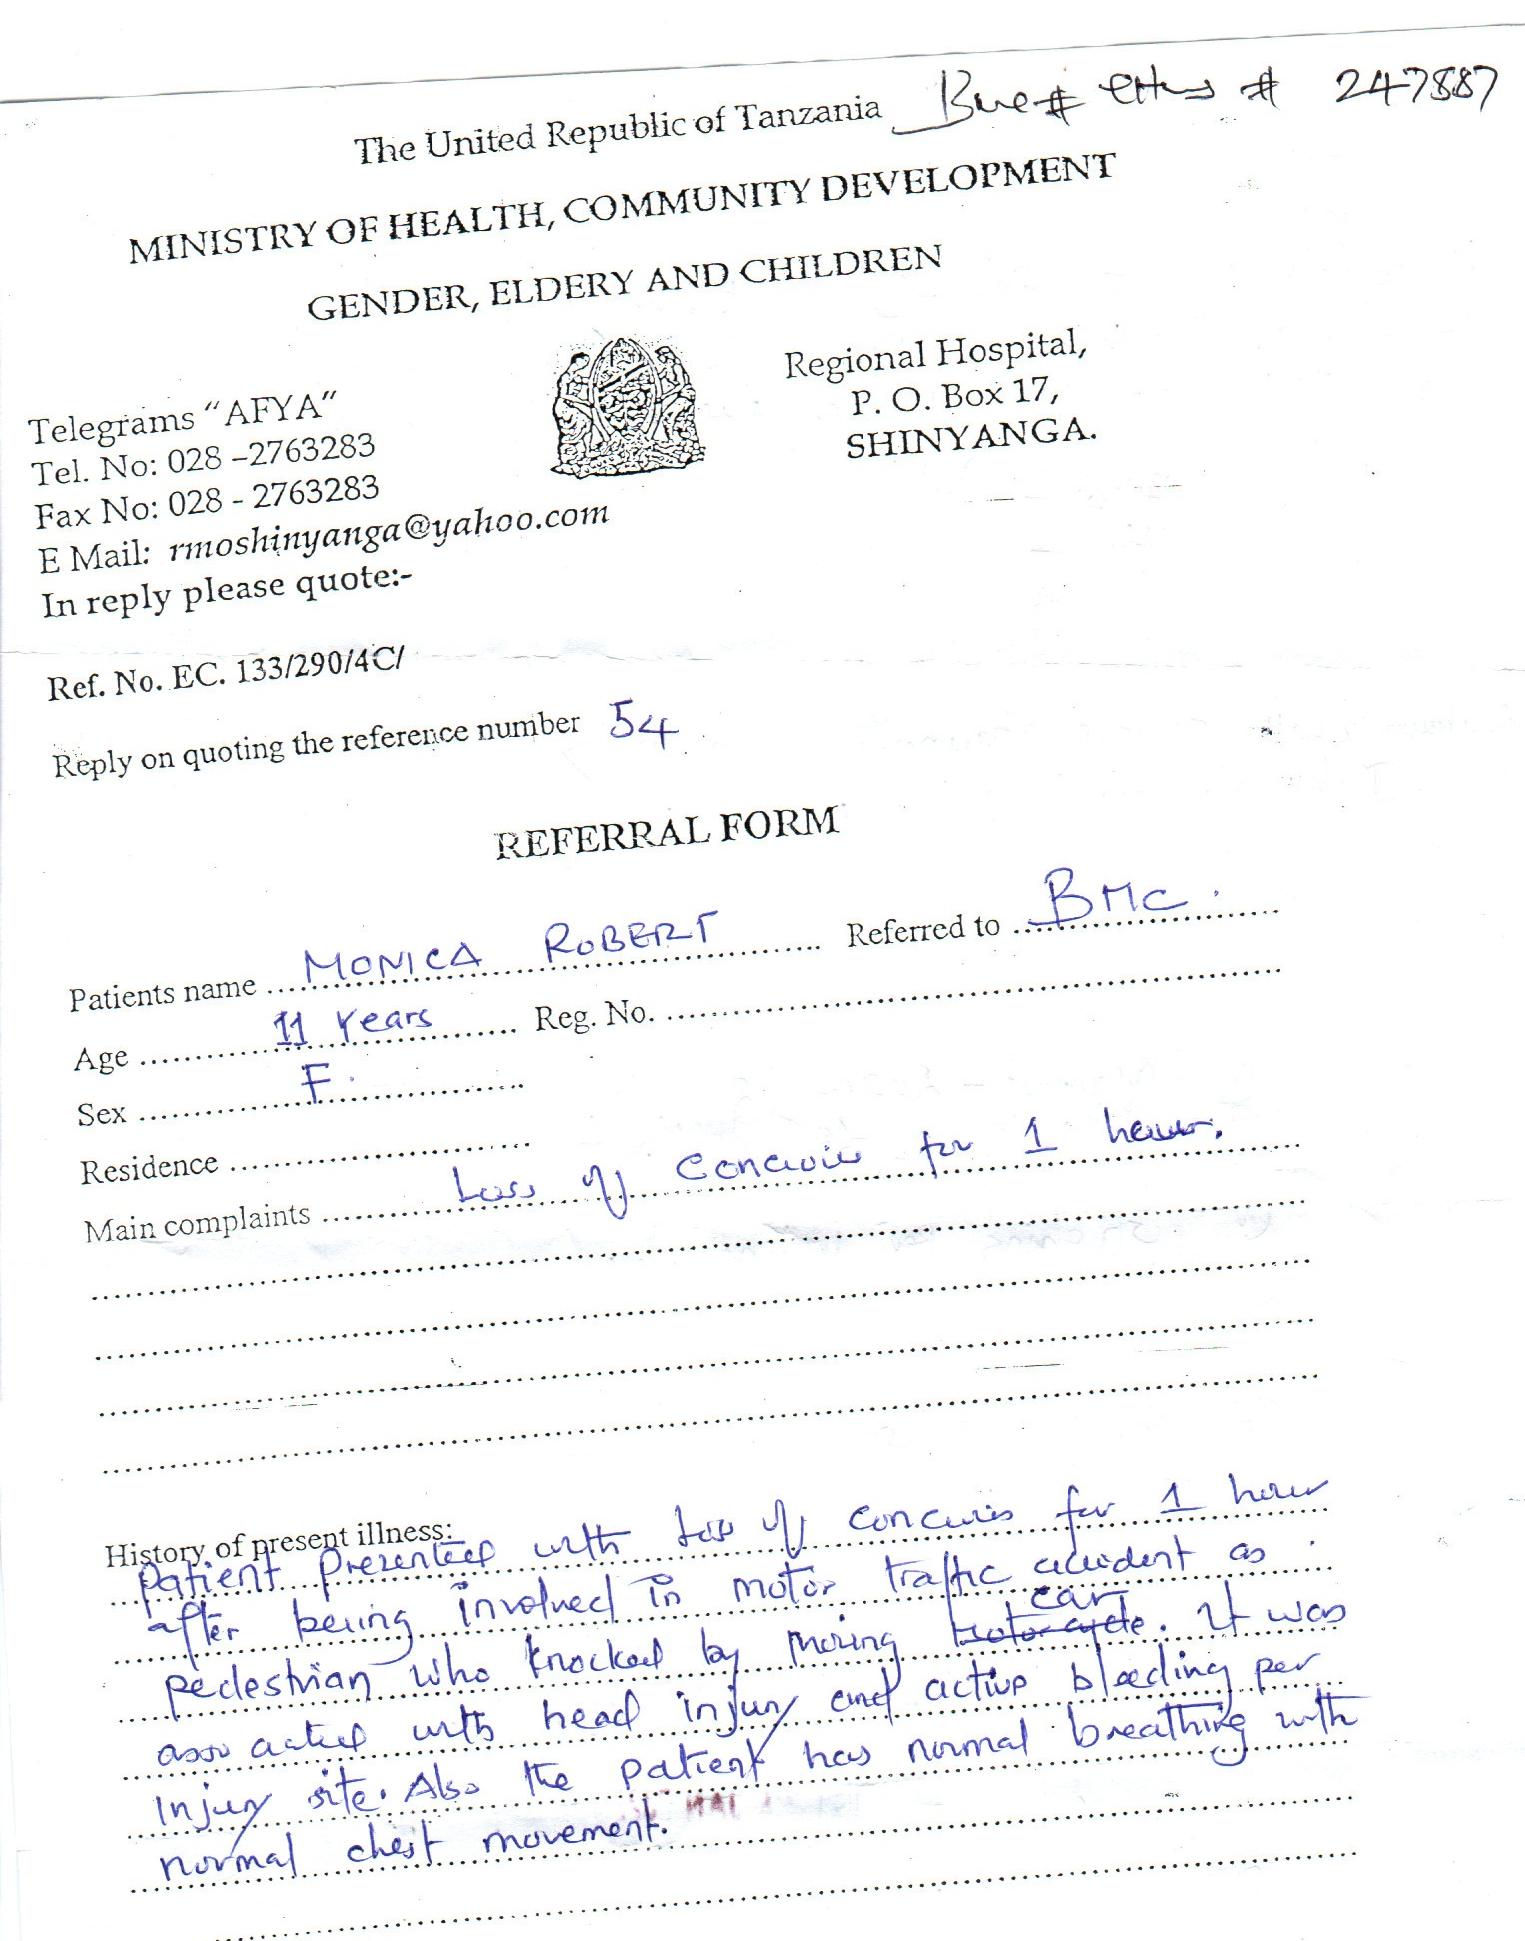 The United Republic of Tanzania # # 247887
MINISTRY OF HEALTH, COMMUNITY DEVELOPMENT
GENDER, ELDERY AND CHILDREN
Regional Hospital,
P. O. Box 17,
SHINYANGA.
Telegrams "AFYA"
Tel. No: 028 –2763283
Fax No: 028 - 2763283
E Mail: rmoshinyanga@yahoo.com
In reply please quote:-
Ref. No. EC. 133/290/4C/
Reply on quoting the reference number 54
REFERRAL FORM
Patients name MONICA ROBERT Referred to BMC.
Age 11 Years Reg. No.
Sex F.
Residence
Main complaints Loss of for 1 hour.
History of present illness:
Patient presented with loss of for 1 hour
after being involved in motor traffic accident as
car
pedestrian who knocked by moving motorcycle. It was
associated with head injury and active bleeding per
injury site. Also the patient has normal breathing with
normal chest movement.